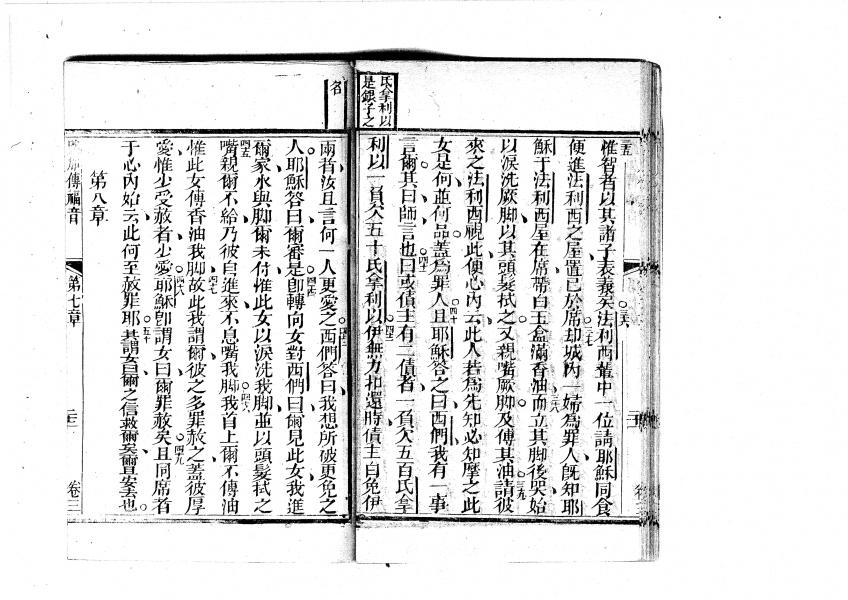 三五
惟智者以其諸子表義矣法利西輩中一位請耶穌同食
三六
便進法利西之屋置已於席却城內一婦為罪人既知耶
三七
穌于法利西屋在席帶白玉盒滿香油而立其脚後哭始
三八
以淚洗厥脚以其頭髮拭之又親嘴厥脚及傅其油請彼
三九
來之法利西視此便心內云此人若為先知必知摩之此
女是何並何品蓋為罪人且耶穌答之曰西們我有一事
四十
言爾其曰師言也曰或債主有二債者一負欠五百氏拿
四一
利以一負欠五十氏拿利以伊無力扣還時債主白免伊
四二
氏拿利以
是銀子之
名
兩者汝且言何一人更愛之西們答曰我想所破更免之
四三
人耶穌答曰爾審是卽轉向女對西們曰爾見此女我進
四四
爾家水與脚爾未付惟此女以淚洗我脚並以頭髮拭之
四五
嘴親爾不給乃彼自進來不息嘴我脚我首上爾不傅油
四六
惟此女傅香油我脚故此我謂爾彼之多罪赦之蓋彼厚
四七
愛惟少受赦者少愛耶穌卽謂女曰爾罪赦矣且同席者
四八
四九
于心內始云此何至赦罪耶其謂女曰爾之信救爾矣爾且安去也
五十
第八章
傳福音
第七章
二三
卷三